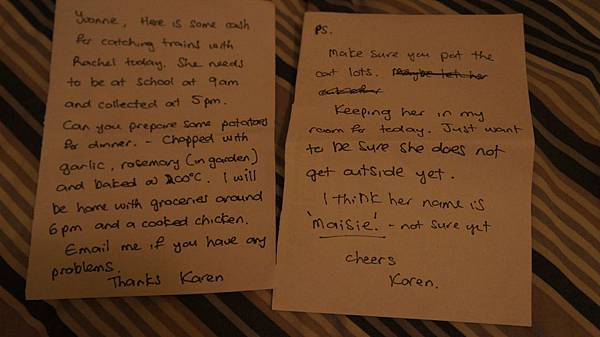 Yvonne, Here is some cash
for catching trains with
Rachel today. She needs
to be at school at 9am
and collected at 5pm.
Can you prepare some potatoes
for dinner. - Chopped with
garlic, rosemary (in garden)
and baked @ 200°C. I will
be home with groceries around
6pm and a cooked chicken.
Email me if you have any
problems.
Thanks Karen
PS.
Make sure you pat the
cat lots. Maybe let her
Keeping her in my
room for today. Just want
to be sure she does not
get outside yet.
I think her name is
'Maisie!' - not sure yet
cheers
Karen.